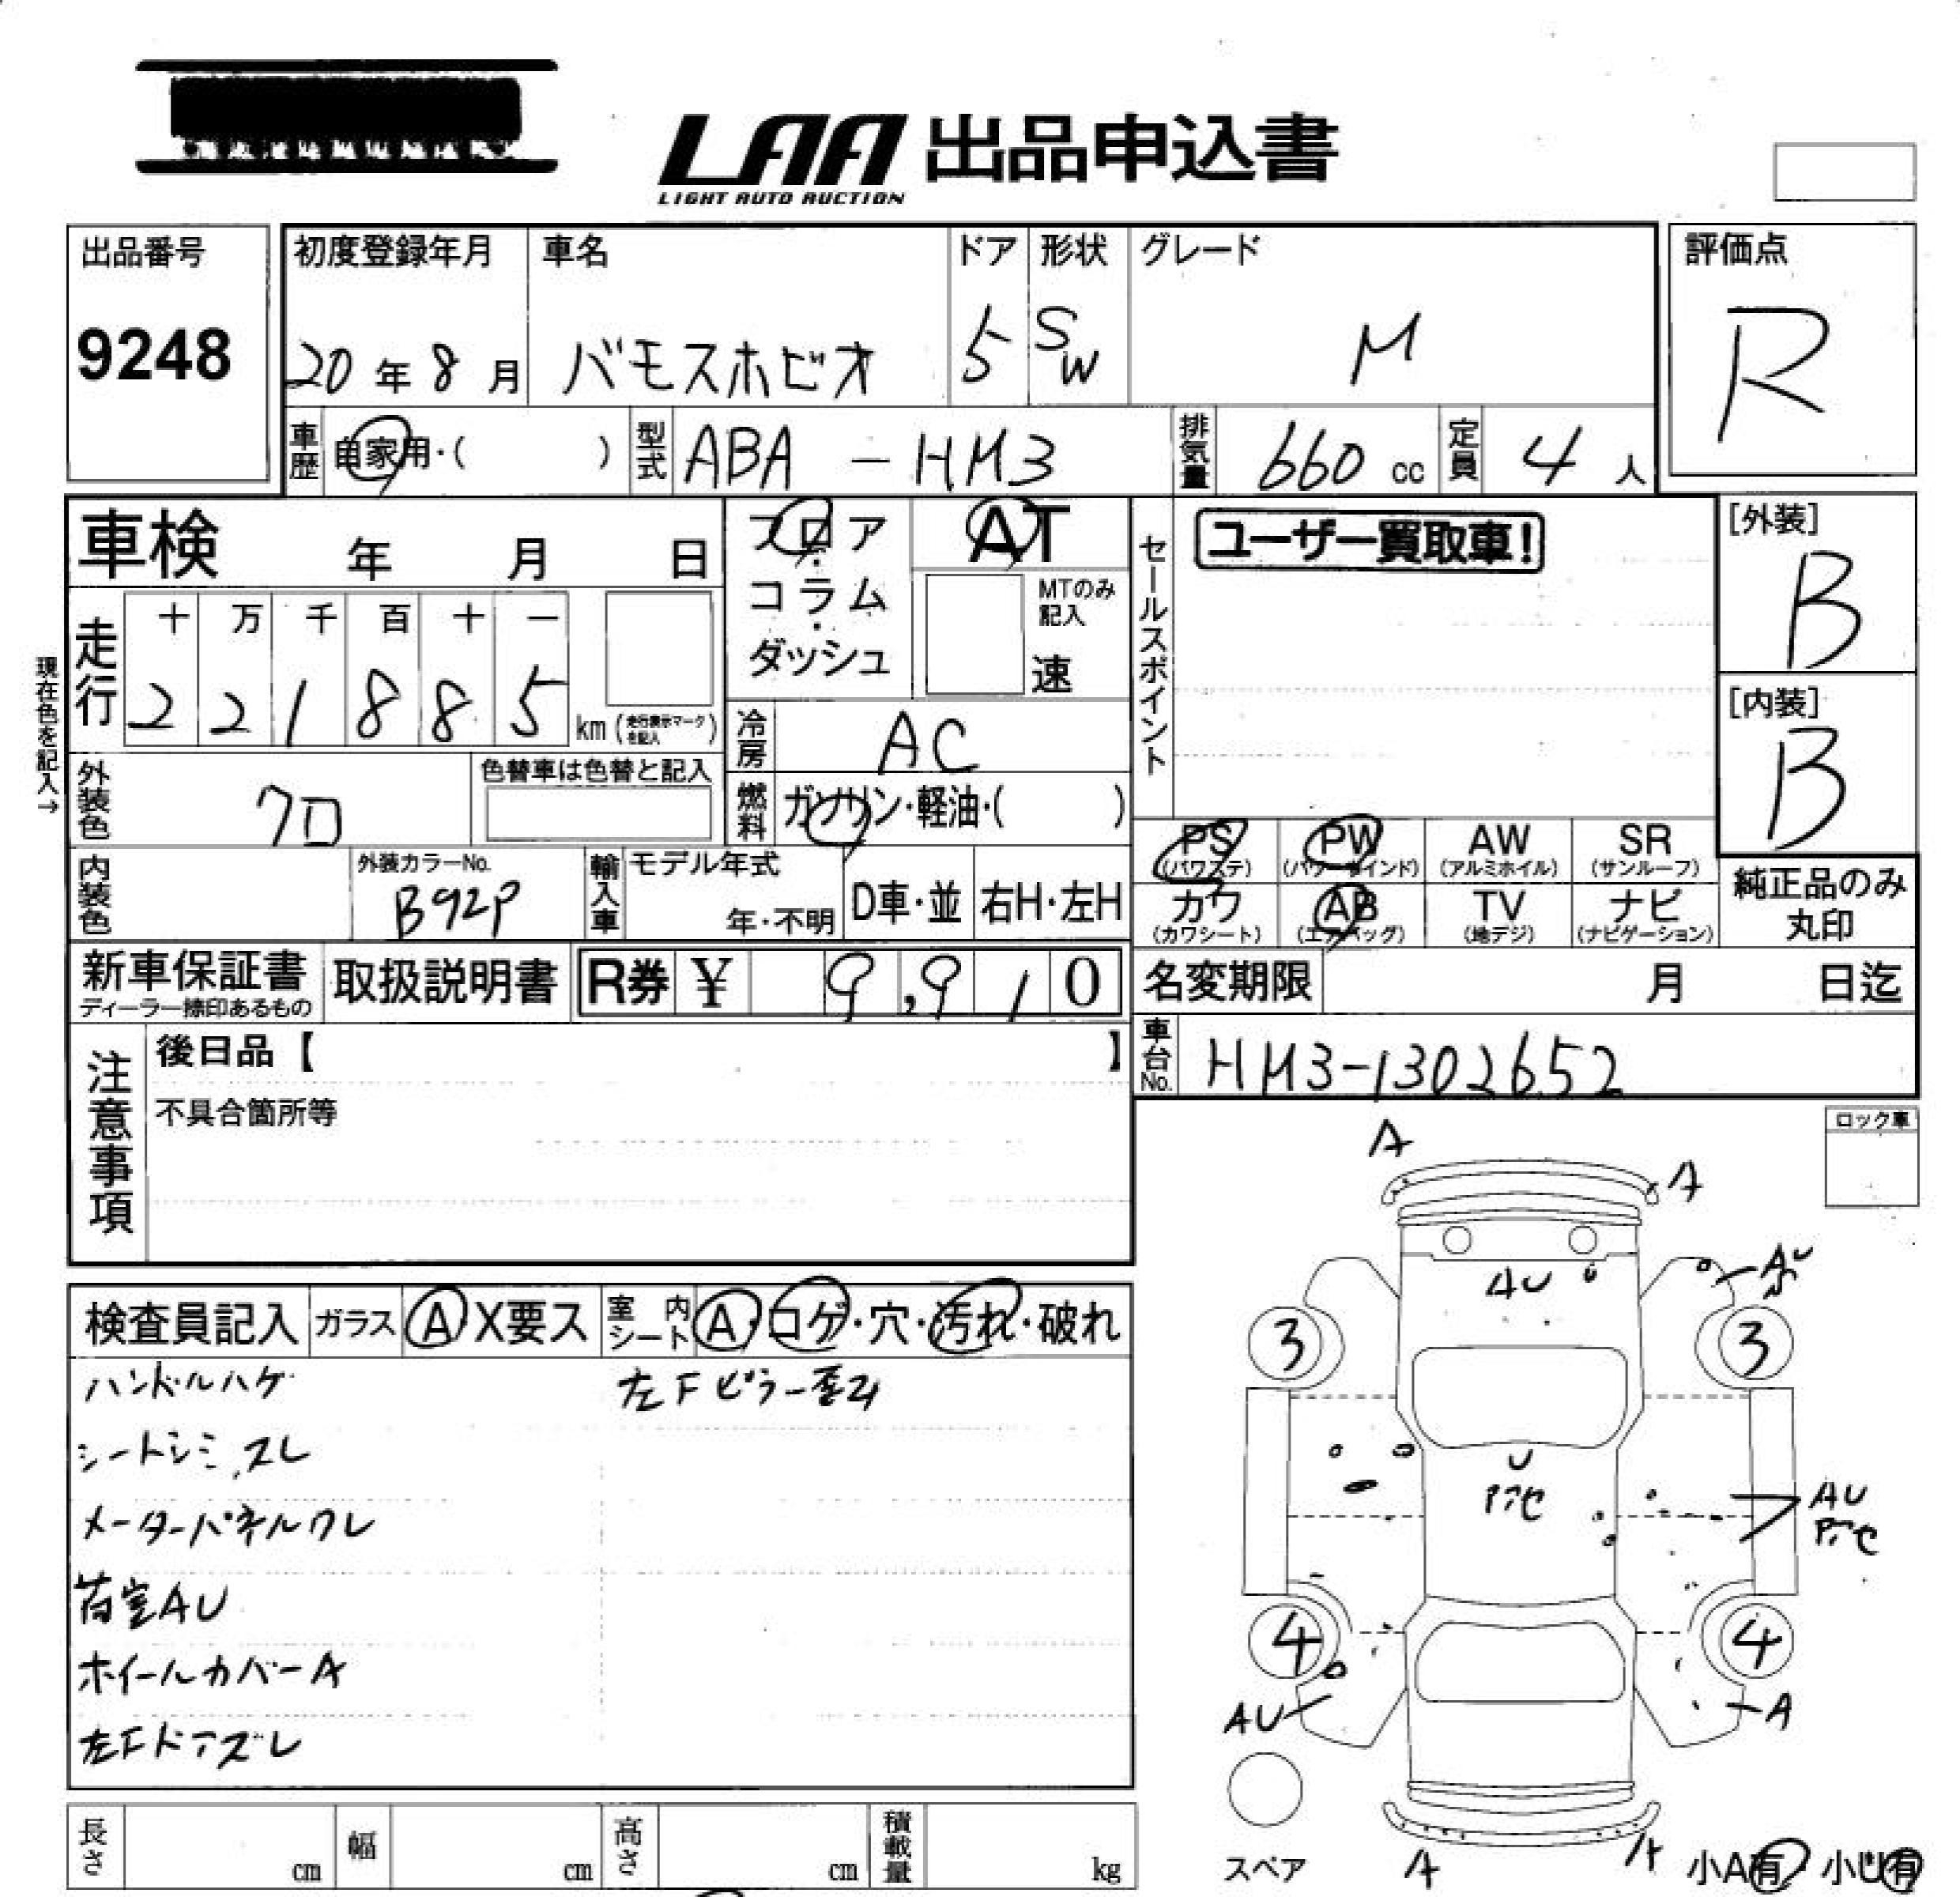 LAA 出品申込書
LIGHT AUTO AUCTION
出品番号
9248
初度登録年月 車名 ドア 形状 グレード
20年8月 バモスホビオ 5 SW M
評価点
R
車歴 自家用・( ) 型式 ABA - HM3 排気量 660 cc 定員 4 人
車検 年 月 日
フロア・コラム・ダッシュ
AT
MTのみ記入
速
セールスポイント
ユーザー買取車!
[外装]
B
[内装]
B
現在色を記入→
走行 十 万 千 百 十 一
2 2 1 8 8 5 km (走行表示マークを記入)
冷房 AC
燃料 ガソリン・軽油・( )
外装色 クロ 色替車は色替と記入
内装色 外装カラーNo. B92P
輸入車 モデル年式 年・不明 D車・並 右H・左H
PS (パワステ) PW (パワーウインド) AW (アルミホイル) SR (サンルーフ)
カワ (カワシート) AB (エアバッグ) TV (地デジ) ナビ (ナビゲーション)
純正品のみ丸印
新車保証書 ディーラー捺印あるもの 取扱説明書 R券 ¥ 9,910
名変期限 月 日迄
車台No. HM3-1302652
注意事項 後日品【 】
不具合箇所等
ロック車
検査員記入 ガラス A X要ス 室内シート A・コゲ・穴・汚れ・破れ
ハンドルハゲ 左Fピラー歪み
シートシミ、スレ
メーターパネルワレ
荷室AU
ホイールカバーA
左Fドアズレ
A
A
AU
AU
3 3
U
アセ
AU
アセ
4 4
AU
A
スペア
A
A
小A有 小U有
長さ cm 幅 cm 高さ cm 積載量 kg